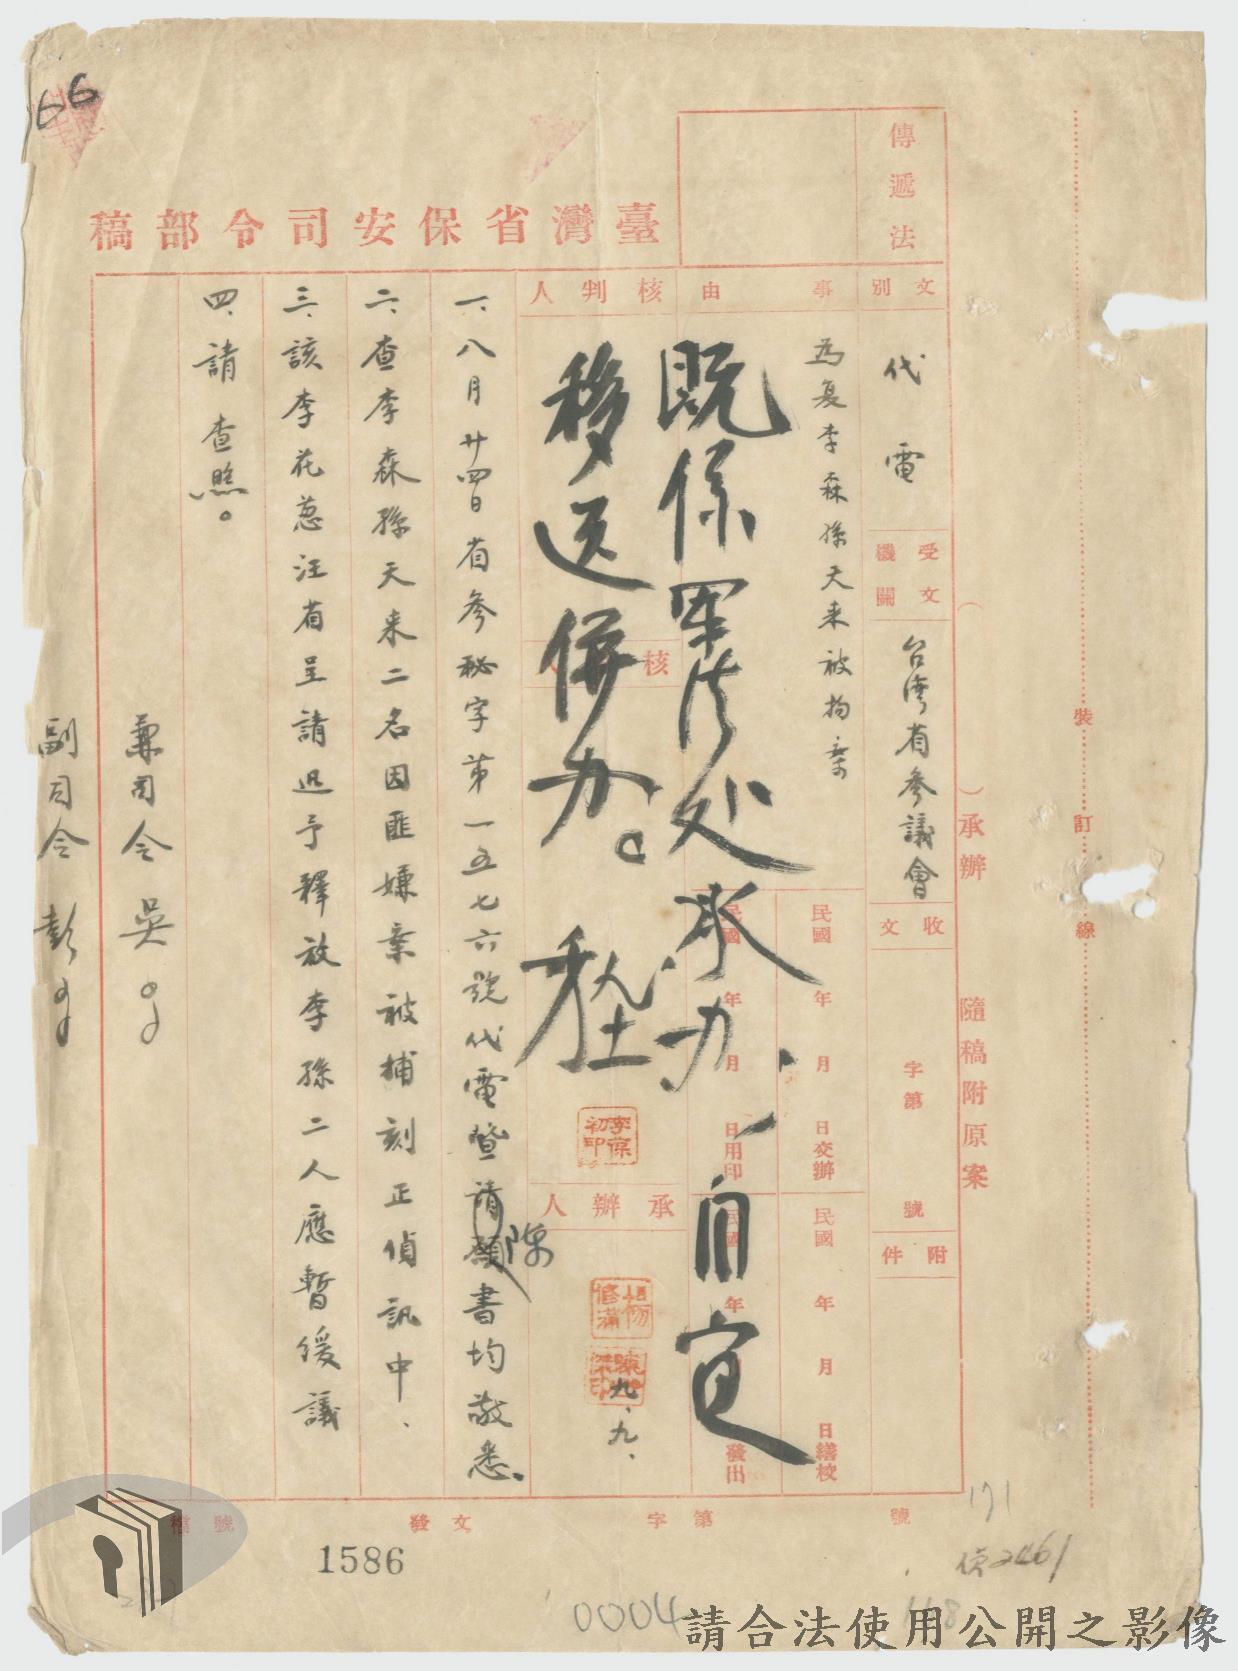 66
臺灣省保安司令部稿
傳遞法
文別
代電
受文機關
台湾省參議會
收文
字第
號
附件
事由
為复李森孫天来被拘案
民國 年 月 日交辦
民國 年 月 日繕校
民國 年 月 日用印
民國 年 發出
核判人
核
承辦人
既係軍法处承办，自宜
移送併办。
九、九、
一、八月廿四日省參秘字第一五七六號代電暨請願書均敬悉、
陳
二、查李森孫天来二名因匪嫌案被捕刻正偵訊中、
三、該李花葱汪省呈請迅予釋放李孫二人應暫緩議
四、請查照。
兼司令吳
副司令彭
（ ）承辦 隨稿附原案
裝訂線
檔號
發文 字第 號
1586
0004
171
偵2461
請合法使用公開之影像